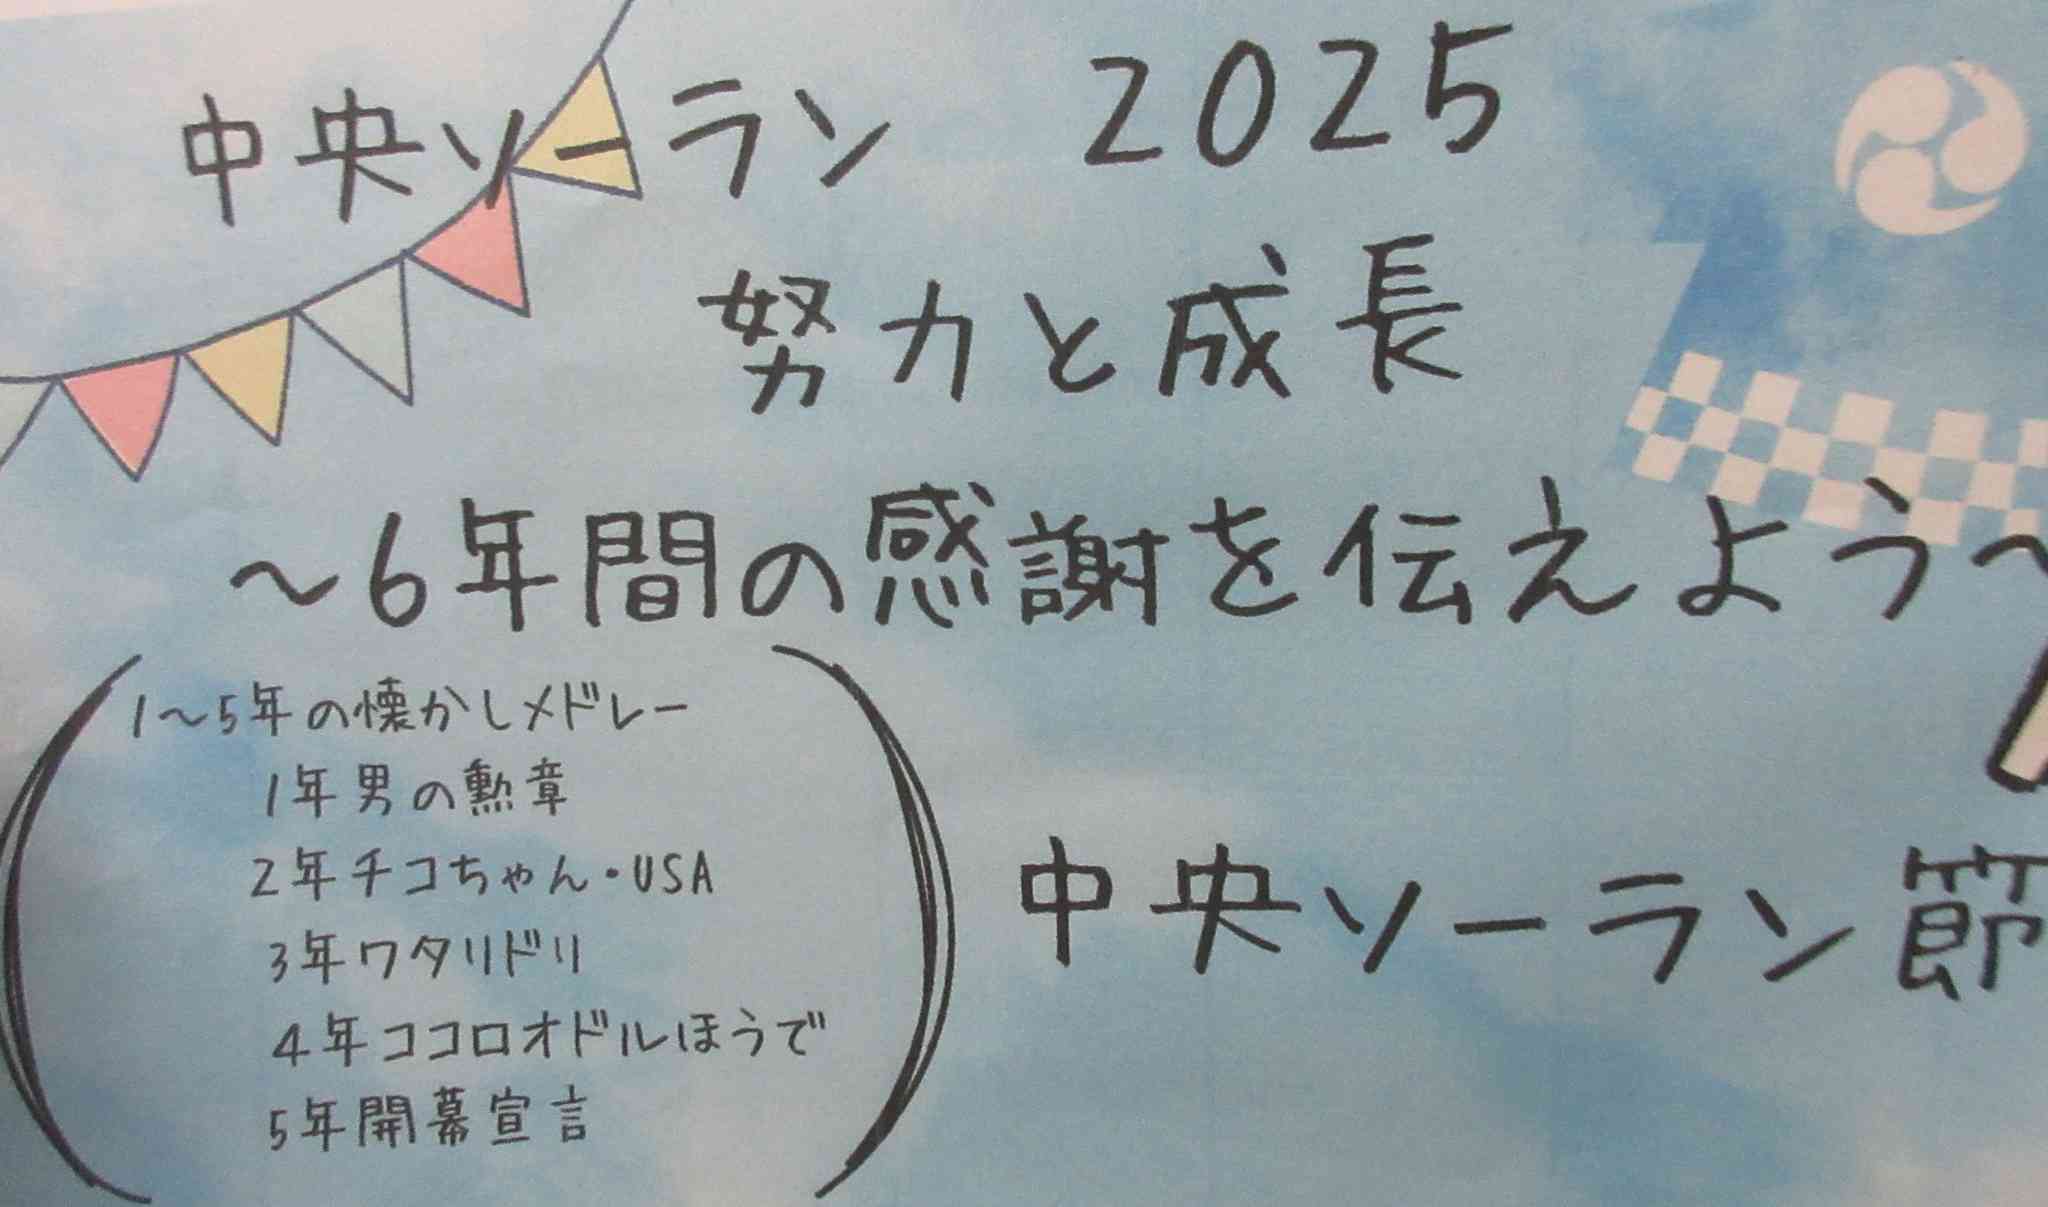 中央ソーラン 2025
努力と成長
～6年間の感謝を伝えよう～
1～5年の懐かしメドレー
1年男の勲章
2年チコちゃん・USA
3年ワタリドリ
4年ココロオドルほうで
5年開幕宣言
中央ソーラン節